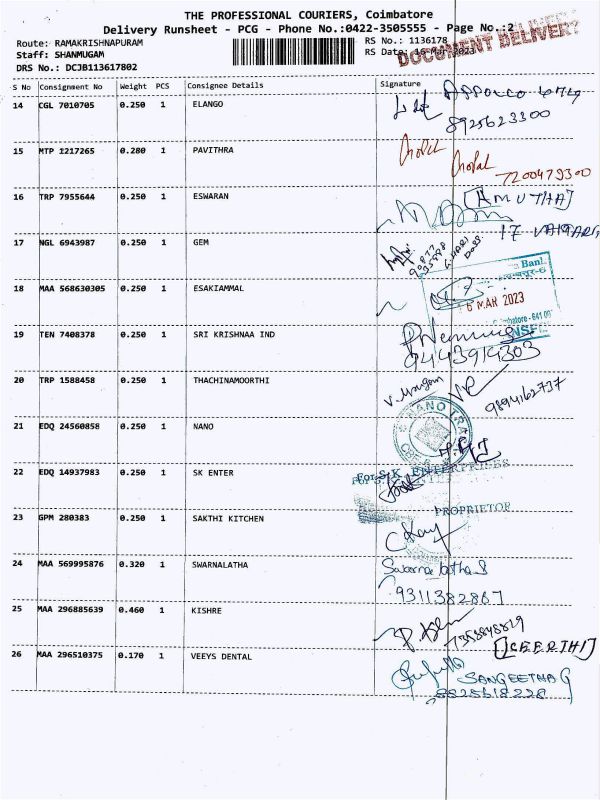 THE PROFESSIONAL COURIERS, Coimbatore
Delivery Runsheet - PCG - Phone No.:0422-3505555 - Page No.:2
Route: RAMAKRISHNAPURAM
RS No.: 1136178
Staff: SHANMUGAM
RS Date: 16-Mar-2023
DOCUMENT DELIVERY
DRS No.: DCJB113617802
S No Consignment No Weight PCS Consignee Details Signature
14 CGL 7010705 0.250 1 ELANGO
8925623300
15 MTP 1217265 0.280 1 PAVITHRA
Gopal
7200479300
16 TRP 7955644 0.250 1 ESWARAN
[AMUTHA]
17 NGL 6943987 0.250 1 GEM
Bank
18 MAA 568630305 0.250 1 ESAKIAMMAL
6 MAR 2023
19 TEN 7408378 0.250 1 SRI KRISHNAA IND
9443914303
20 TRP 1588458 0.250 1 THACHINAMOORTHI
9894162737
21 EDQ 24560858 0.250 1 NANO
NANO
22 EDQ 14937983 0.250 1 SK ENTER
For S.K. ENTERPRISES
PROPRIETOR
23 GPM 280383 0.250 1 SAKTHI KITCHEN
24 MAA 569995876 0.320 1 SWARNALATHA
Swarnalatha S
9311382867
25 MAA 296885639 0.460 1 KISHRE
7358848819
[KEERTHI]
26 MAA 296510375 0.170 1 VEEYS DENTAL
SANGEETHA G
8825618228